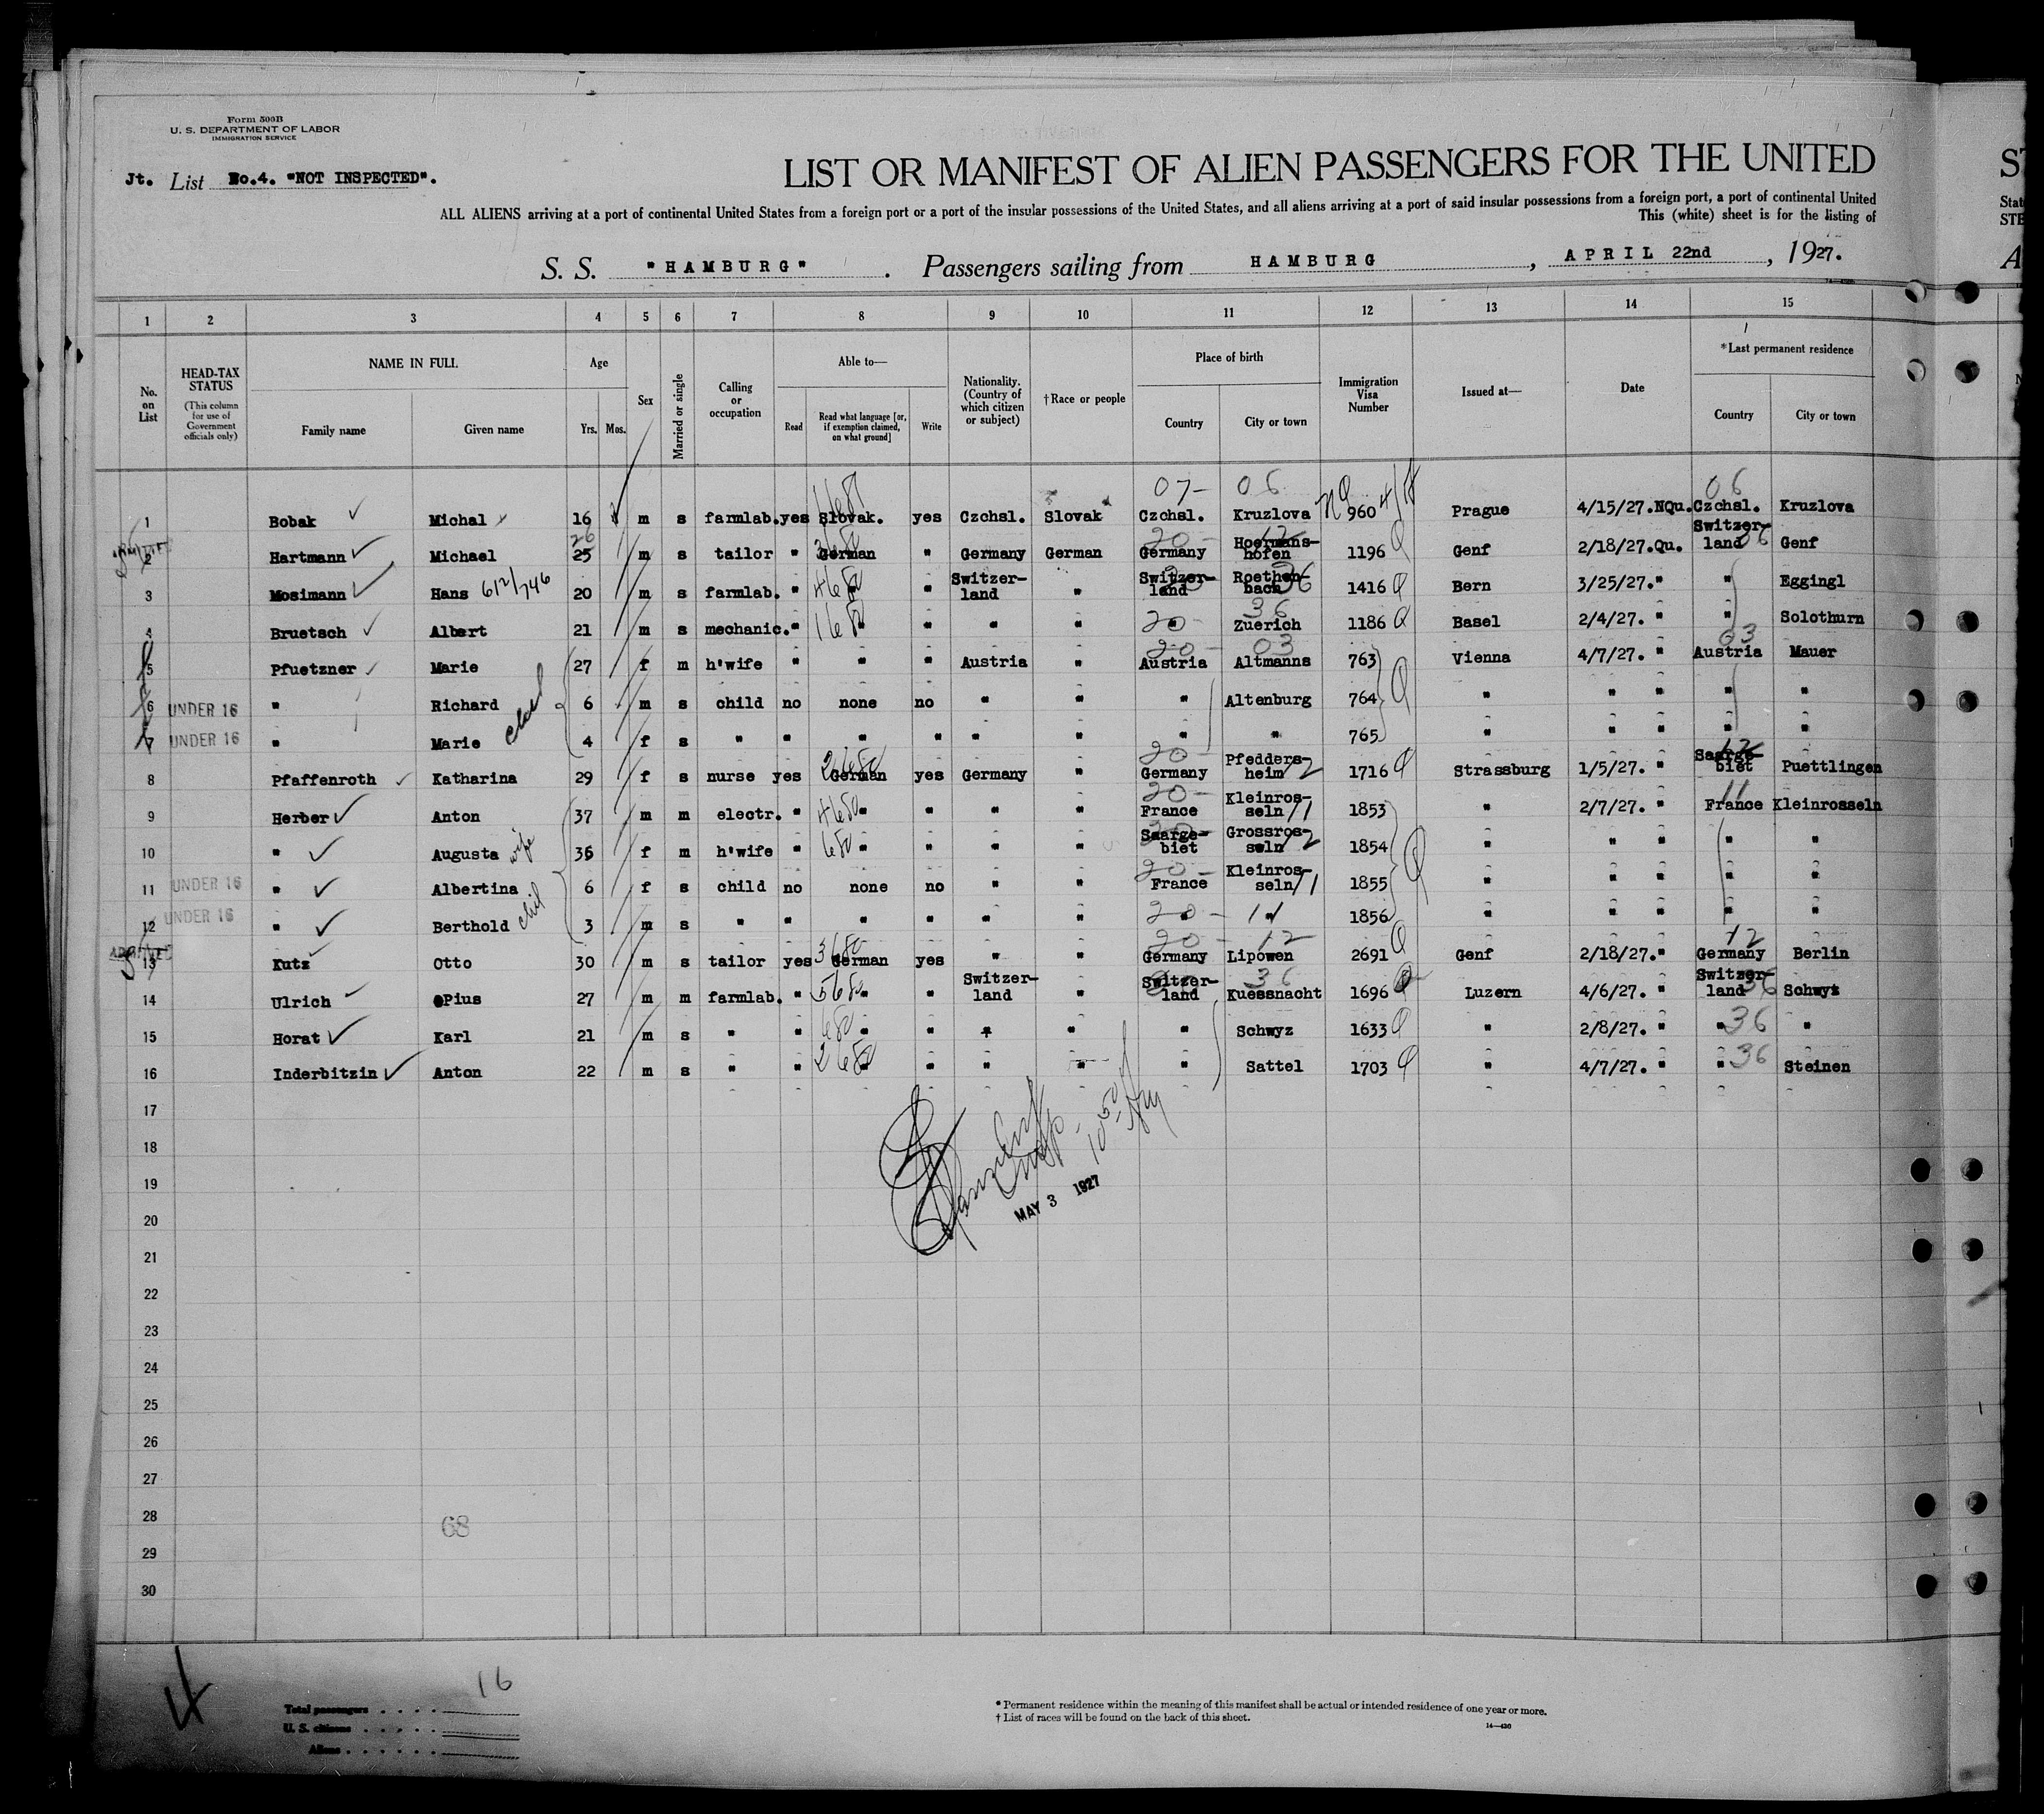 Form 500B
U. S. DEPARTMENT OF LABOR
IMMIGRATION SERVICE
Jt. List No.4. "NOT INSPECTED".
LIST OR MANIFEST OF ALIEN PASSENGERS FOR THE UNITED
ALL ALIENS arriving at a port of continental United States from a foreign port or a port of the insular possessions of the United States, and all aliens arriving at a port of said insular possessions from a foreign port, a port of continental United
This (white) sheet is for the listing of
S. S. "HAMBURG". Passengers sailing from HAMBURG, APRIL 22nd, 1927.
1 2 3 4 5 6 7 8 9 10 11 12 13 14 15
No. on List
HEAD-TAX STATUS (This column for use of Government officials only)
NAME IN FULL Family name Given name
Age Yrs. Mos.
Sex
Married or single
Calling or occupation
Able to— Read Read what language [or, if exemption claimed, on what ground] Write
Nationality. (Country of which citizen or subject)
† Race or people
Place of birth Country City or town
Immigration Visa Number
Issued at—
Date
*Last permanent residence Country City or town
07- 06 06
1 Bobak Michal 16 m s farmlab. yes Slovak. yes Czchsl. Slovak Czchsl. Kruzlova 960 Prague 4/15/27. NQu. Czchsl. Kruzlova
2 Hartmann Michael 25 26 m s tailor " German " Germany German Germany Hoermans-hofen 1196 Genf 2/18/27. Qu. Switzer-land Genf
3 Mosimann Hans 612/746 20 m s farmlab. " " " Switzer-land " Switzer-land Roethen-bach 36 1416 Bern 3/25/27. " " Eggingl
4 Bruetsch Albert 21 m s mechanic. " " " " " " 20- 36 Zuerich 1186 Basel 2/4/27. " " Solothurn
5 Pfuetzner Marie 27 f m h'wife " " " Austria " 20- Austria 03 Altmanns 763 Vienna 4/7/27. " 03 Austria Mauer
6 UNDER 16 " Richard 6 m s child no none no " " " Altenburg 764 " " " " "
7 UNDER 16 " Marie child 4 f s " " " " " " " " 765 " " " " "
8 Pfaffenroth Katharina 29 f s nurse yes German yes Germany " 20- Germany Pfedders-heim 1716 Strassburg 1/5/27. " 12 Saarge-biet Puettlingen
9 Herber Anton 37 m m electr. " " " " " 20- France Kleinros-seln 11 1853 " 2/7/27. " 11 France Kleinrosseln
10 " Augusta wife 36 f m h'wife " " " " " Saarge-biet Grossros-seln 1854 " " " " "
11 UNDER 16 " Albertina 6 f s child no none no " " 20- France Kleinros-seln 11 1855 " " " " "
12 UNDER 16 " Berthold 3 m s " " " " " " 20- " 11 " 1856 " " " " "
13 Kutz Otto 30 m s tailor yes German yes " " 20- Germany 12 Lipowen 2691 Genf 2/18/27. " 12 Germany Berlin
14 Ulrich Pius 27 m m farmlab. " " " Switzer-land " Switzer-land 36 Kuessnacht 1696 Luzern 4/6/27. " Switzer-land 36 Schwyz
15 Horat Karl 21 m s " " " " " " " Schwyz 1633 " 2/8/27. " " 36 "
16 Inderbitzin Anton 22 m s " " " " " " " Sattel 1703 " 4/7/27. " " 36 Steinen
17
MAY 3 1927
18
19
20
21
22
23
24
25
26
27
28
68
29
30
4
16
Total passengers
U. S. citizens
Aliens
* Permanent residence within the meaning of this manifest shall be actual or intended residence of one year or more.
† List of races will be found on the back of this sheet.
14—430